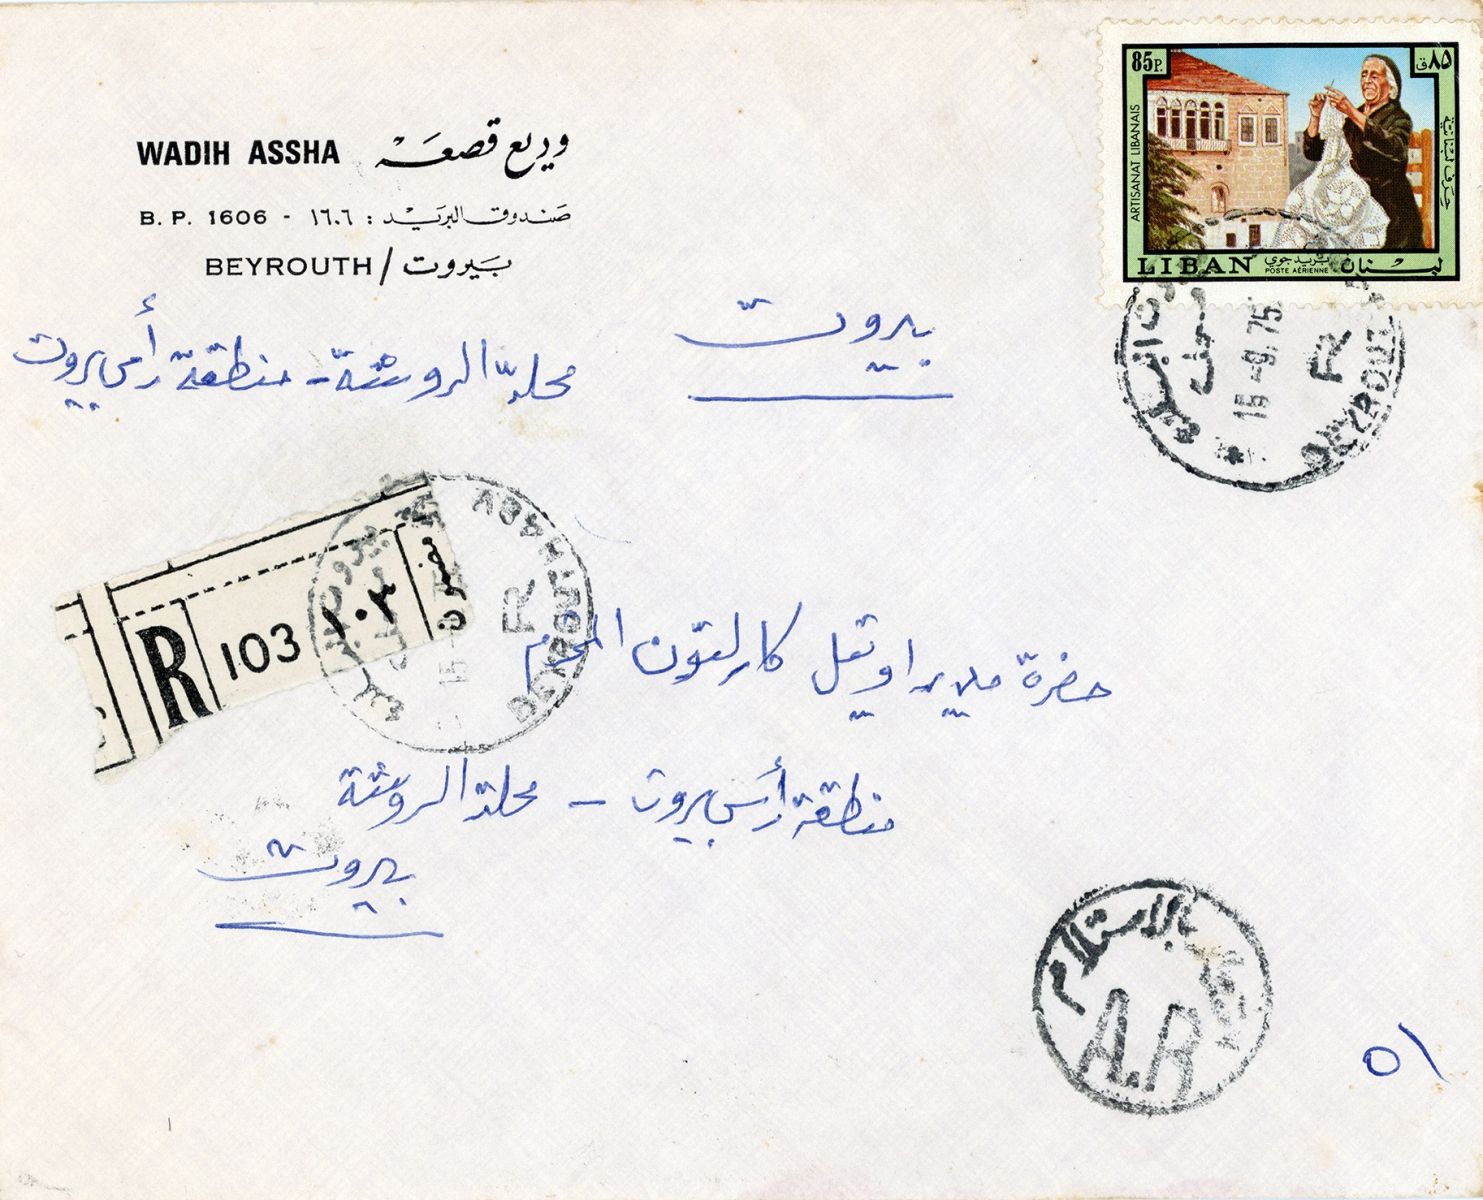 WADIH ASSHA وديع قصعه
B. P. 1606 - ١٦٠٦ : صندوق البريد
BEYROUTH / بيروت
85P. ٨٥ق
ARTISANAT LIBANAIS
حرف لبنانية
LIBAN بريد جوي لبنان
POSTE AÉRIENNE
BEYROUTH R
15-9.75
بيروت
محلة الروشة - منطقة رأس بيروت
R 103 ١٠٣ مضمون
BEYROUTH R
حضرة مدير اوتيل كارلتون المحترم
منطقة رأس بيروت - محلة الروشة
بيروت
بالاستلام
A.R
٥١